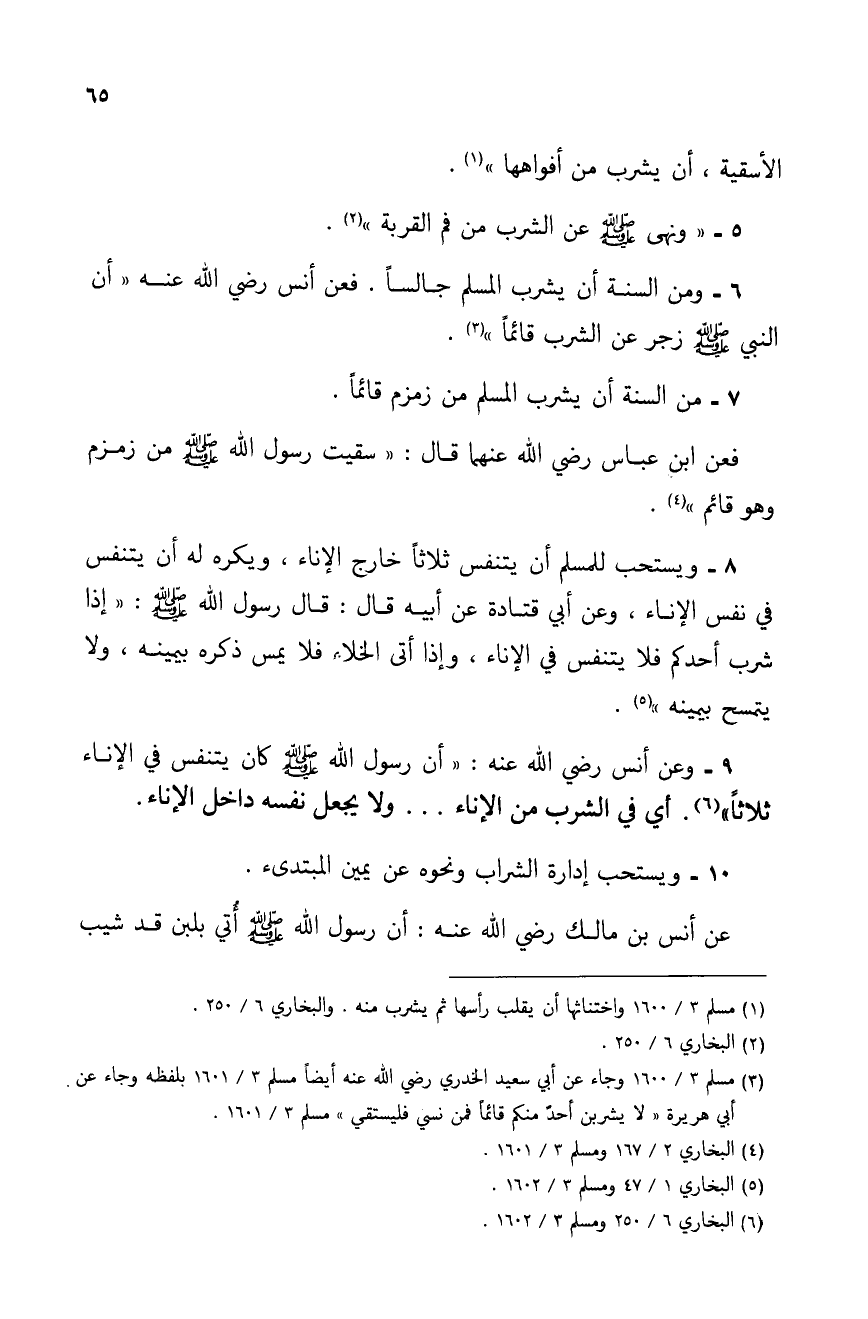 ٦٥
الأسقية ، أن يشرب من أفواهها »(١) .
٥ ـ « ونهى ﷺ عن الشرب من فم القربة »(٢) .
٦ ـ ومن السنة أن يشرب المسلم جالساً . فعن أنس رضي الله عنه « أن
النبي ﷺ زجر عن الشرب قائماً »(٣) .
٧ ـ من السنة أن يشرب المسلم من زمزم قائماً .
فعن ابن عباس رضي الله عنهما قال : « سقيت رسول الله ﷺ من زمزم
وهو قائم »(٤) .
٨ ـ ويستحب للمسلم أن يتنفس ثلاثاً خارج الإناء ، ويكره له أن يتنفس
في نفس الإناء ، وعن أبي قتادة عن أبيه قال : قال رسول الله ﷺ : « إذا
شرب أحدكم فلا يتنفس في الإناء ، وإذا أتى الخلاء فلا يمس ذكره بيمينه ، ولا
يتمسح بيمينه »(٥) .
٩ ـ وعن أنس رضي الله عنه : « أن رسول الله ﷺ كان يتنفس في الإناء
ثلاثاً»(٦). أي في الشرب من الإناء ... ولا يجعل نفسه داخل الإناء.
١٠ ـ ويستحب إدارة الشراب ونحوه عن يمين المبتدىء .
عن أنس بن مالك رضي الله عنه : أن رسول الله ﷺ أُتي بلبن قد شيب
(١) مسلم ٣ / ١٦٠٠ واختناثها أن يقلب رأسها ثم يشرب منه . والبخاري ٦ / ٢٥٠ .
(٢) البخاري ٦ / ٢٥٠ .
(٣) مسلم ٣ / ١٦٠٠ وجاء عن أبي سعيد الخدري رضي الله عنه أيضاً مسلم ٣ / ١٦٠١ بلفظه وجاء عن .
أبي هريرة « لا يشربن أحدٌ منكم قائماً فمن نسي فليستقي » مسلم ٣ / ١٦٠١ .
(٤) البخاري ٢ / ١٦٧ ومسلم ٣ / ١٦٠١ .
(٥) البخاري ١ / ٤٧ ومسلم ٣ / ١٦٠٢ .
(٦) البخاري ٦ / ٢٥٠ ومسلم ٣ / ١٦٠٢ .